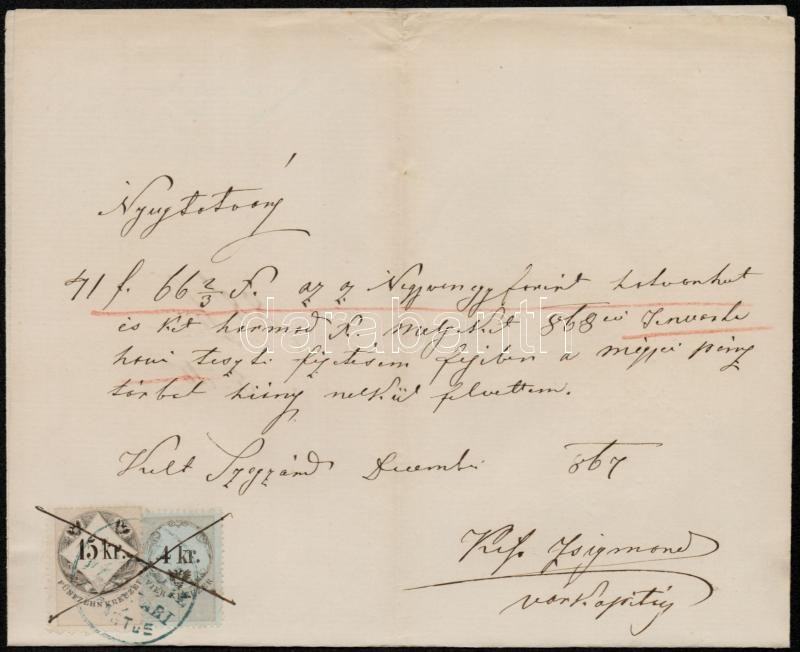 Nyugtatvány
41 f. 66 2/3 k. az az Negyvenegy forint hatvanhat
és két harmad k. melyeket 868 évi Januárhó
havi tiszti fizetésem fejében a megyei pénz
tárból hiány nélkül felvettem.
Kelt Szegzárd December 867
Kiss Zsigmond
várkapitány
darabanth
15 kr.
FÜNFZEHN KREUZER
4 kr.
VIER KREUZER